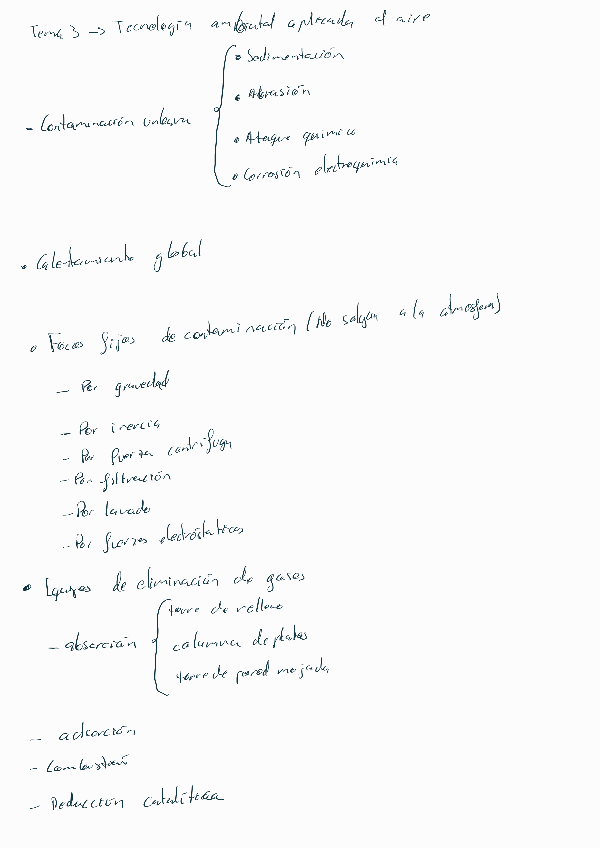 Tema 3 -> Tecnología ambiental aplicada al aire
• Sedimentación
• Abrasión
- Contaminación urbana
• Ataque químico
• Corrosión electroquímica
• Calentamiento global
• Focos fijos de contaminación (No salgan a la atmosfera)
- Por gravedad
- Por inercia
- Por fuerza centrífuga
- Por filtración
- Por lavado
- Por fuerzas electróstaticas
• Equipos de eliminación de gases
torre de relleno
- absorción
columna de platos
torre de pared mojada
- adsorción
- Combustión
- Reducción catalítica